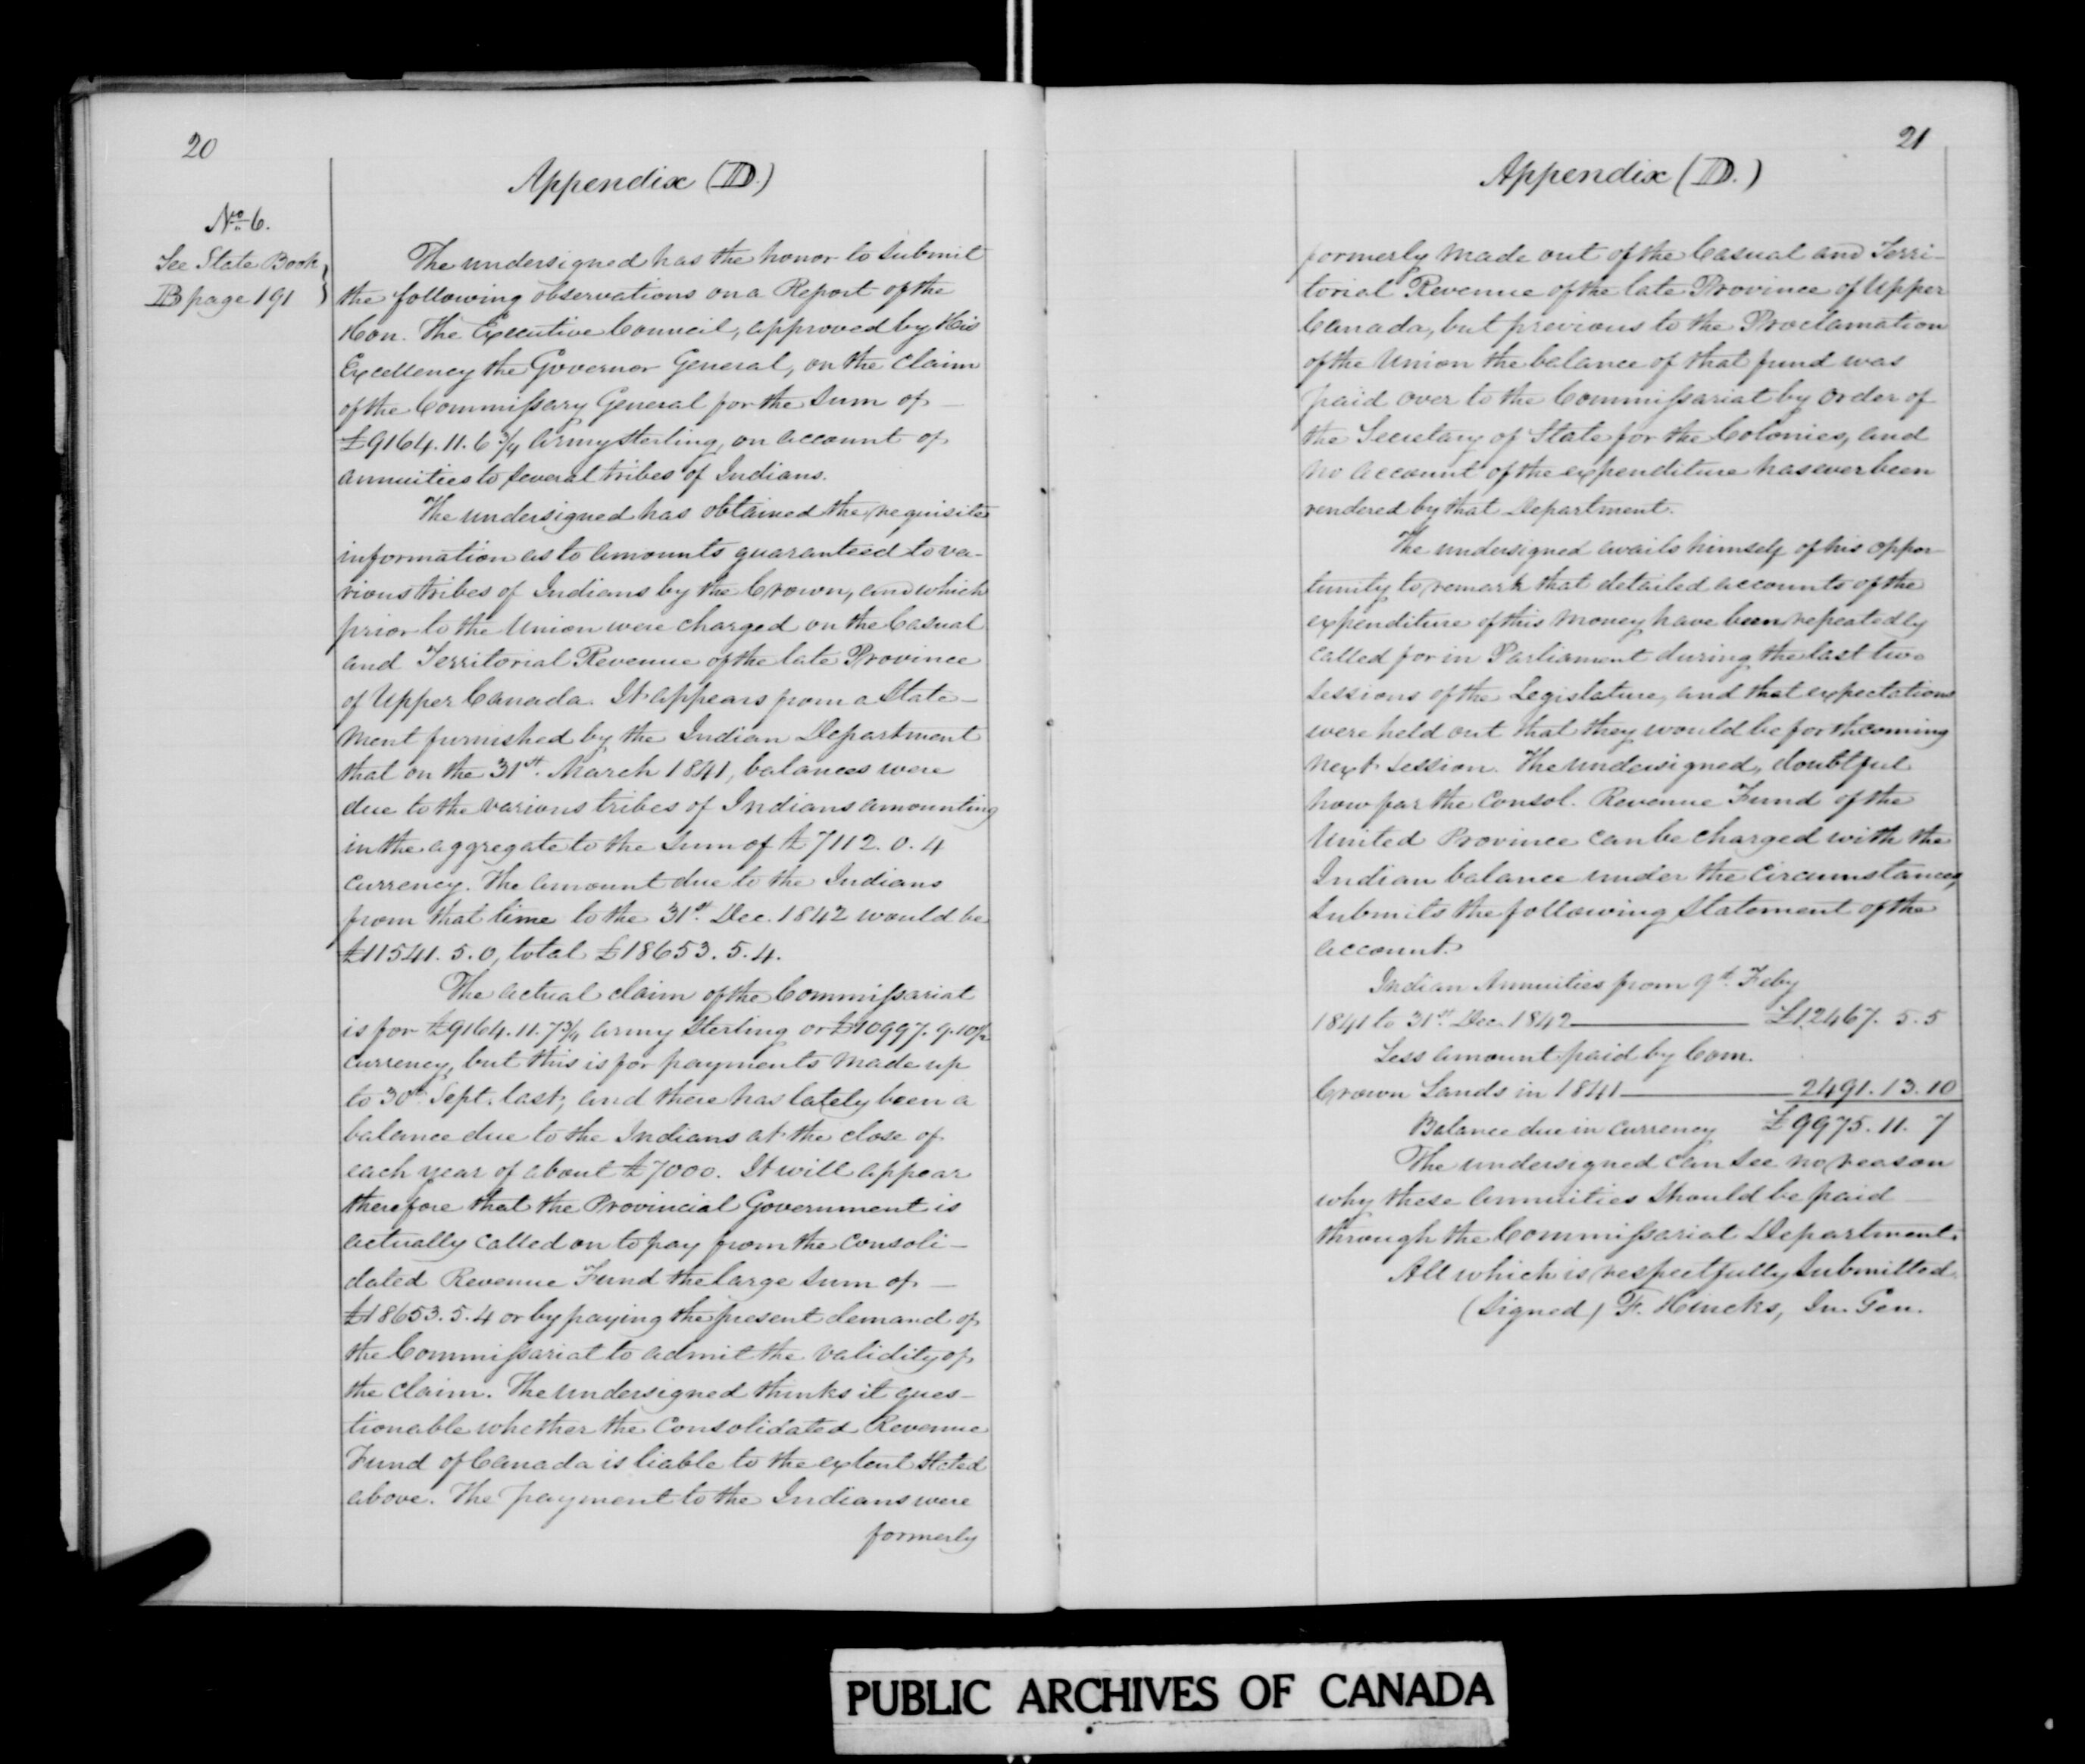 20
Appendix (D.)
No. 6.
See State Book
B page 191
The undersigned has the honor to submit
the following observations on a Report of the
Hon. the Executive Council, approved by His
Excellency the Governor General, on the claim
of the Commissary General for the sum of
£9164.11.6¾ army sterling, on account of
annuities to several tribes of Indians.
The undersigned has obtained the requisite
information as to amounts guaranteed to va-
rious tribes of Indians by the Crown, and which
prior to the Union were charged on the Casual
and Territorial Revenue of the late Province
of Upper Canada. It appears from a State-
ment furnished by the Indian Department
that on the 31st. March 1841, balances were
due to the various tribes of Indians amounting
in the aggregate to the sum of £7112.0.4
currency. The amount due to the Indians
from that time to the 31st. Dec. 1842 would be
£11541.5.0, total £18653.5.4.
The actual claim of the Commissariat
is for £9164.11.7¾ army sterling or £10997.9.10½
currency, but this is for payments made up
to 30th Sept. last, and there has lately been a
balance due to the Indians at the close of
each year of about £7000. It will appear
therefore that the Provincial Government is
actually called on to pay from the Consoli-
dated Revenue Fund the large sum of
£18653.5.4 or by paying the present demand of
the Commissariat to admit the validity of
the claim. The undersigned thinks it ques-
tionable whether the Consolidated Revenue
Fund of Canada is liable to the extent stated
above. The payment to the Indians were
formerly
21
Appendix (D.)
formerly made out of the Casual and Terri-
torial Revenue of the late Province of Upper
Canada, but previous to the Proclamation
of the Union the balance of that fund was
paid over to the Commissariat by order of
the Secretary of State for the Colonies, and
no account of the expenditure has ever been
rendered by that Department.
The undersigned avails himself of his oppor-
tunity to remark that detailed accounts of the
expenditure of this money have been repeatedly
called for in Parliament during the last two
sessions of the Legislature, and that expectations
were held out that they would be forthcoming
next session. The undersigned, doubtful
how far the Consol. Revenue Fund of the
United Province can be charged with the
Indian balance under the circumstances,
submits the following statement of the
account.
Indian Annuities from 9th. Feby
1841 to 31st. Dec. 1842 £12467.5.5
Less amount paid by Com.
Crown Lands in 1841 2491.13.10
Balance due in currency £9975.11.7
The undersigned can see no reason
why these annuities should be paid
through the Commissariat Department.
All which is respectfully submitted.
(Signed) F. Hincks, In. Gen.
PUBLIC ARCHIVES OF CANADA